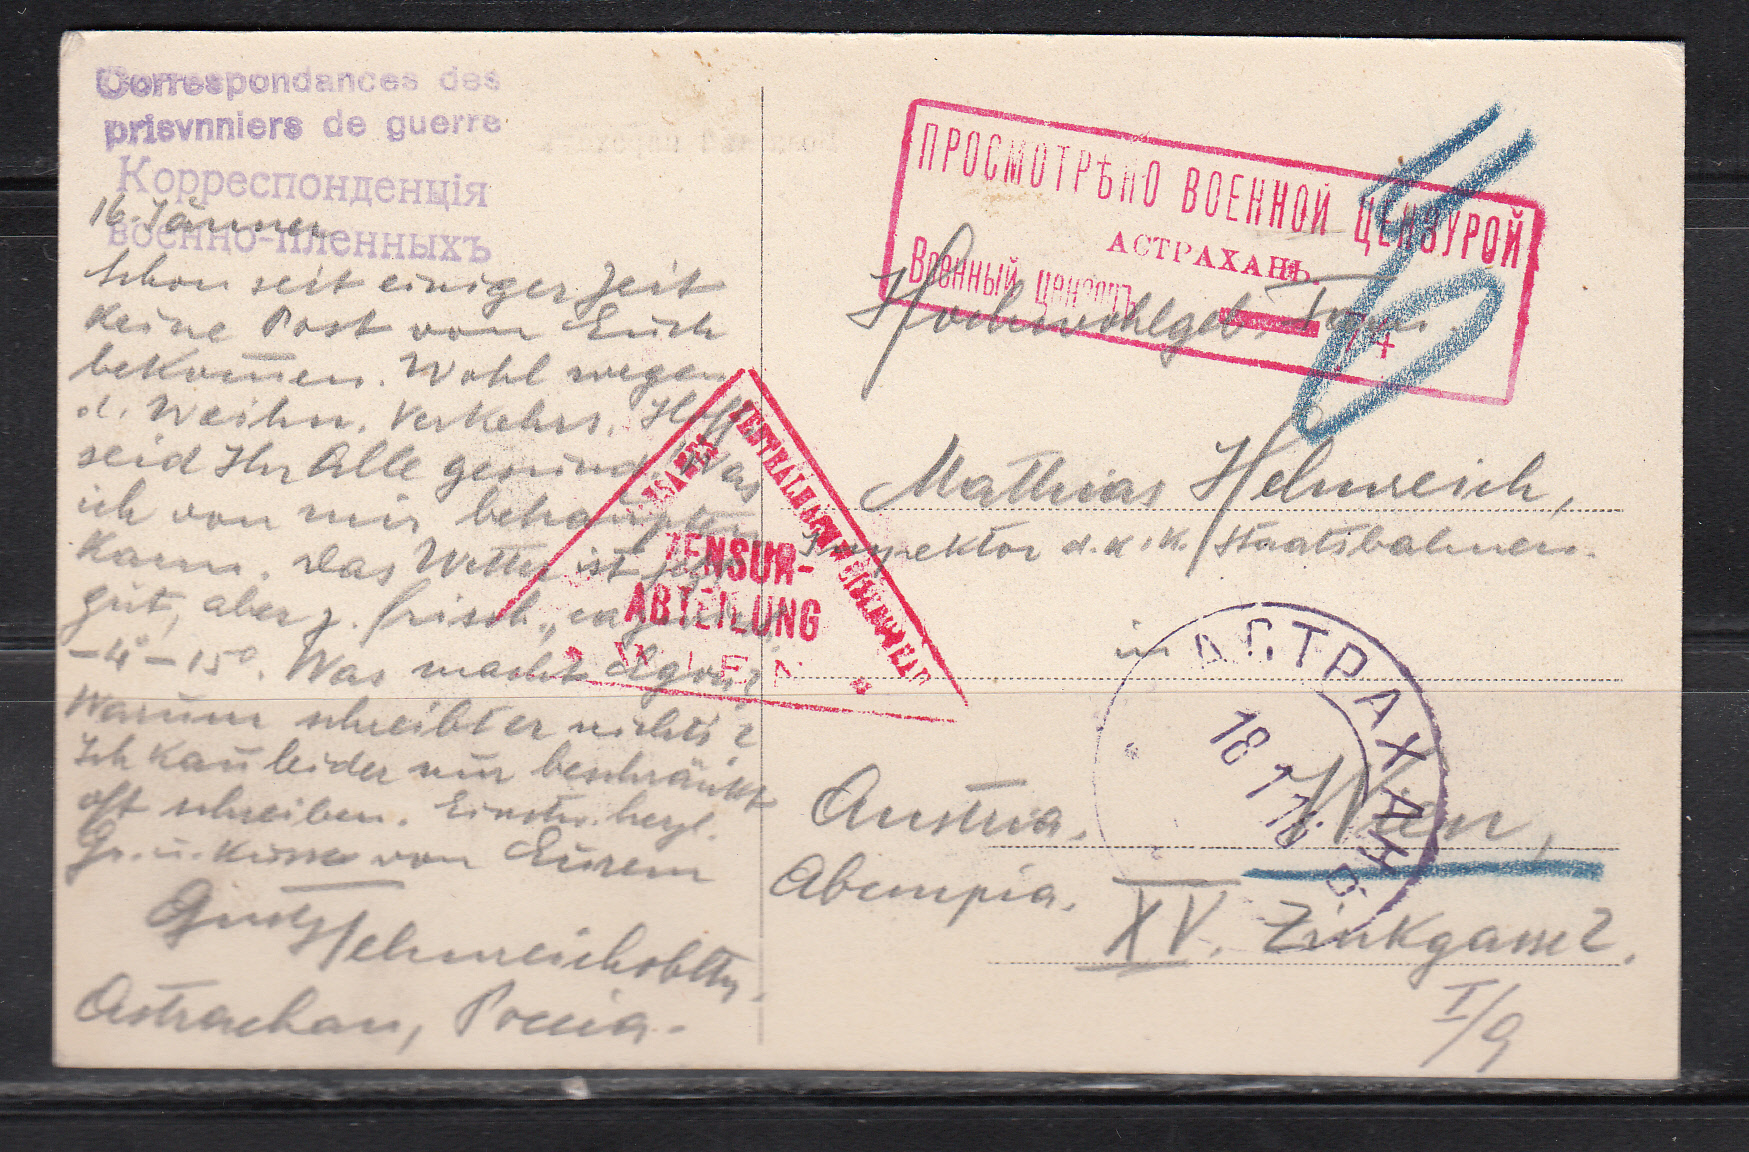 Correspondances des
prisvnniers de guerre
Корреспонденція
военно-плѣнныхъ
16. Jänner
Schon seit einiger Zeit
keine Post von Euch
bekom̅en. Wohl wegen
d. Weihn. Verkehrs. Hoff.
seid Ihr Alle gesund. Was
ich von mir behaupten
kann. Das Wetter ist jetzt
gut, aber z. frisch,
-4° -15°. Was macht Egon?
Warum schreibt er nichts?
Ich kan̅ leider nur beschränkt
oft schreiben. Einstw. herzl.
Gr. u. Küsse von Eurem
Gust Helmreich
Astrachan, Россія.
ПРОСМОТРѢНО ВОЕННОЙ ЦЕНЗУРОЙ
АСТРАХАНЬ.
Военный цензоръ
74
ZENTRALNACHWEISEBUREAU
ZENSUR-
ABTEILUNG
WIEN
Hochwohlgeb.
Mathias Helmreich,
Inspektor d. k. k. Staatsbahnen.
in
АСТРАХАНЬ
18 1 16
Austria. Wien,
Австрія.
XV. Zinkgasse 2.
I/9